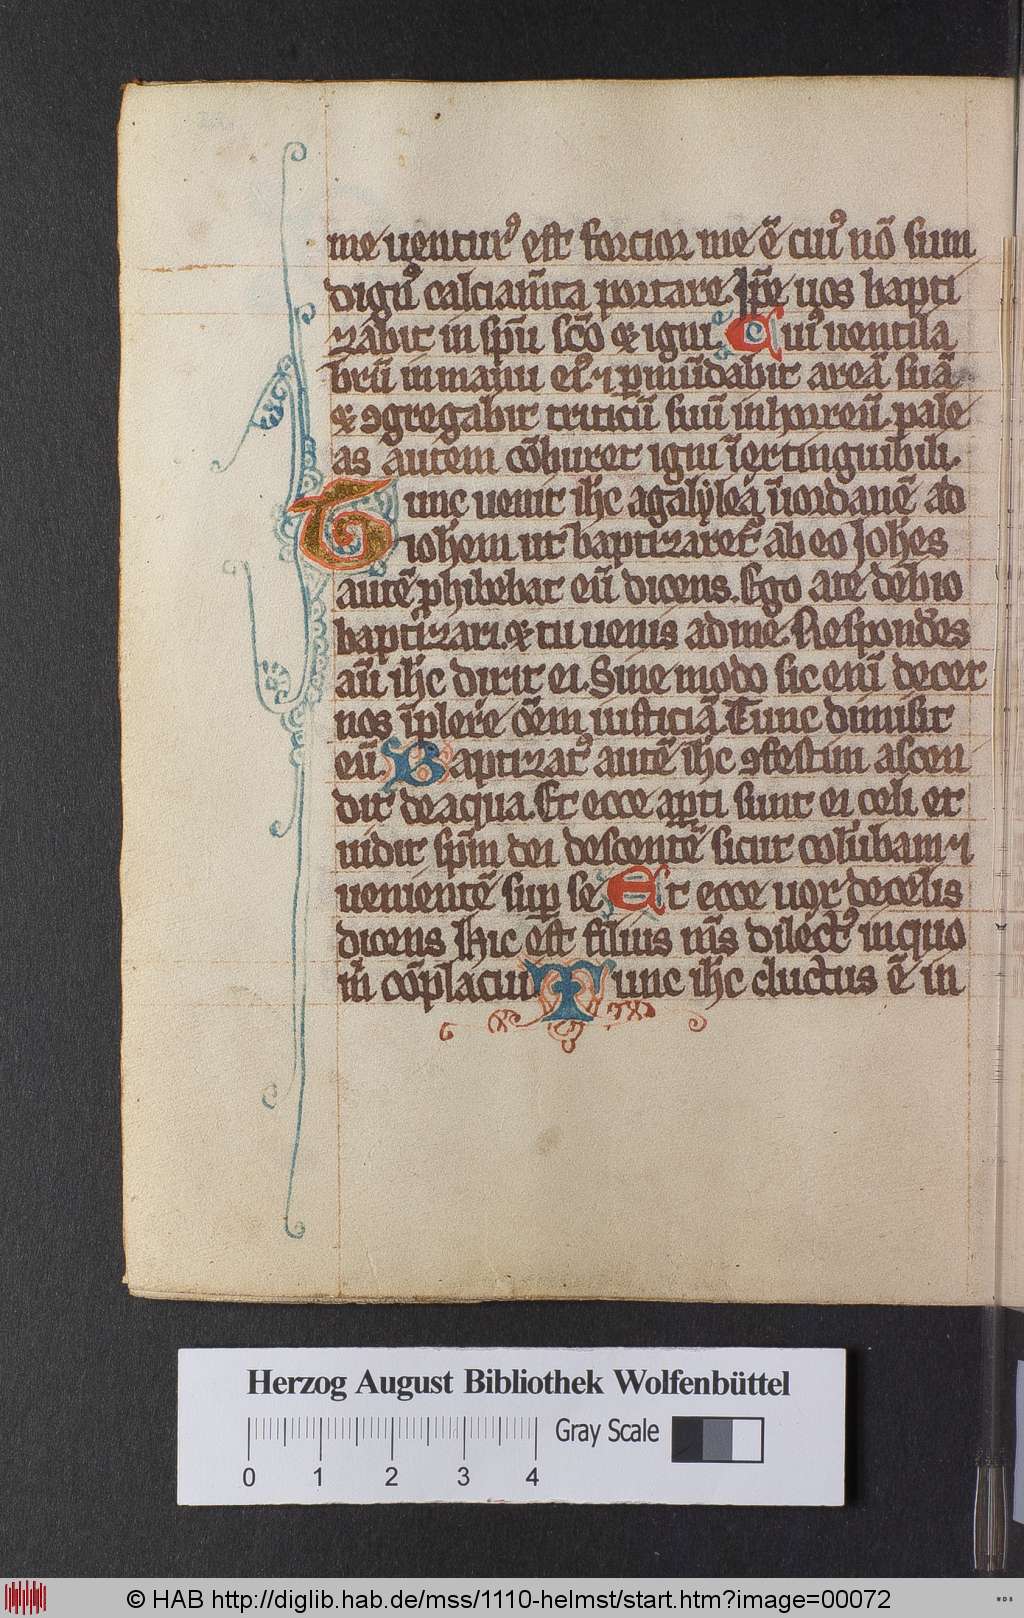 me uenturꝰ est forcior me ē cuiꝰ nō sum
dignꝰ calciam̄ta portare. Ip̄e uos bapti
zabit in sp̄u sc̄o & igni Cuiꝰ uentila
brū in manu eiꝰ ⁊ ꝑmūdabit areā suā
& ꝯgregabit triticū suū in horreū. pale
as autem cōburet igni īextinguibili.
Tunc uenit ih̄c a galylea ī iordanē ad
ioh̄em ut baptizaret᷑ ab eo Joh̄es
autē ꝓhibebat eū dicens. Ego a te debio
baptizari. & tu uenis ad me. Respondēs
aūt ih̄c dixit ei. Sine modo sic enī decet
nos īplere ōem iusticiā. Tunc dimisit
eū Baptizatꝰ autē ih̄c ꝯfestim ascen
dit de aqua. Et ecce aꝑti sunt ei celi et
uidit sp̄m dei descentē sicut colūbam ⁊
uenientē suꝑ se Et ecce uox de celis
dicens. Hic est filius m̄s dilectꝰ in quo
m̄ cōplacui Tunc ih̄c ductus ē in
Herzog August Bibliothek Wolfenbüttel
Gray Scale
0 1 2 3 4
© HAB http://diglib.hab.de/mss/1110-helmst/start.htm?image=00072